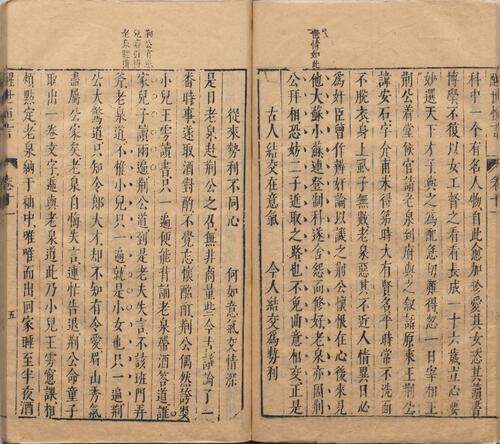 科中一个有名人物自此愈加珍愛恣其讀書
博學不復以女工督之看看長成一十六歲立心要
妙選天下才子與之爲配急切難得忽一日宰相王
荆公着堂候官請老泉到府與之敘話原來王荆公
諱安石字介甫未得第時大有賢名平時常不洗面
不脫衣身上虱子無數老泉惡其不近人情異日必
爲奸臣曾作辨奸論以譏之荆公懷恨在心後來見
他大蘇小蘇連登制科遂舍怨而修好老泉亦因荆
公拜相恐妨二子進取之路也不免曲意相交正是
古人結交在意氣 今人結交爲勢利
從來勢利不同心 何如意氣交情深
是日老泉赴荆公之召無非商量些今古議論了一
番時事遂取酒對酌不覺忘懷酩酊荆公偶然誇奬
小兒王雱讀書只一遍便能背誦老泉帶酒答道誰
家兒子讀兩遍荆公道到是老夫失言不該班門弄
斧老泉道不惟小兒只一遍就是小女也只一遍荆
公大驚道只知令郎大才却不知有令愛眉山秀氣
盡屬公家矣老泉自悔失言連忙告退荆公命童子
取出一卷文字遞與老泉道此乃小兒王雱窓課相
煩點定老泉納于袖中唯唯而出回家睡至半夜酒
醒世恒言 卷十一 五